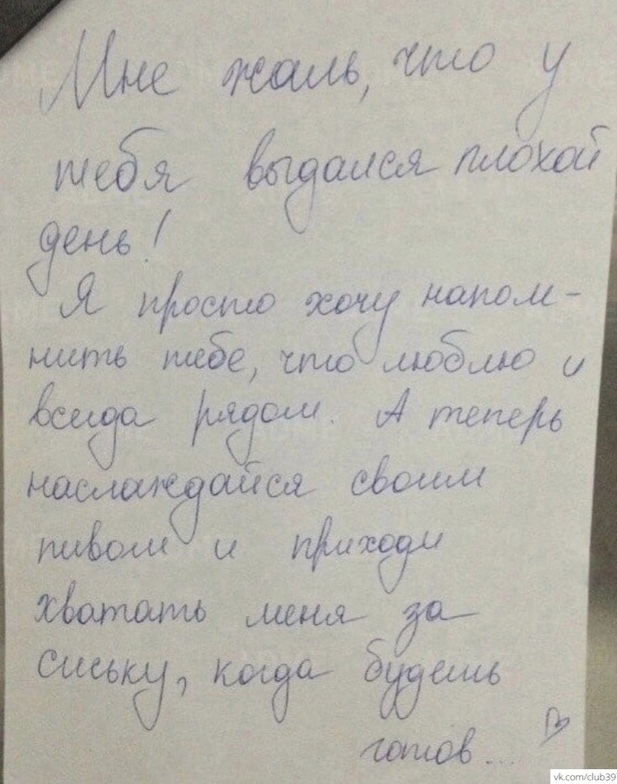 Мне жаль, что у
тебя выдался плохой
день!
Я просто хочу напом-
нить тебе, что люблю и
всегда рядом. А теперь
наслаждайся своим
пивом и приходи
хватать меня за
сиську, когда будешь
готов...
vk.com/club39